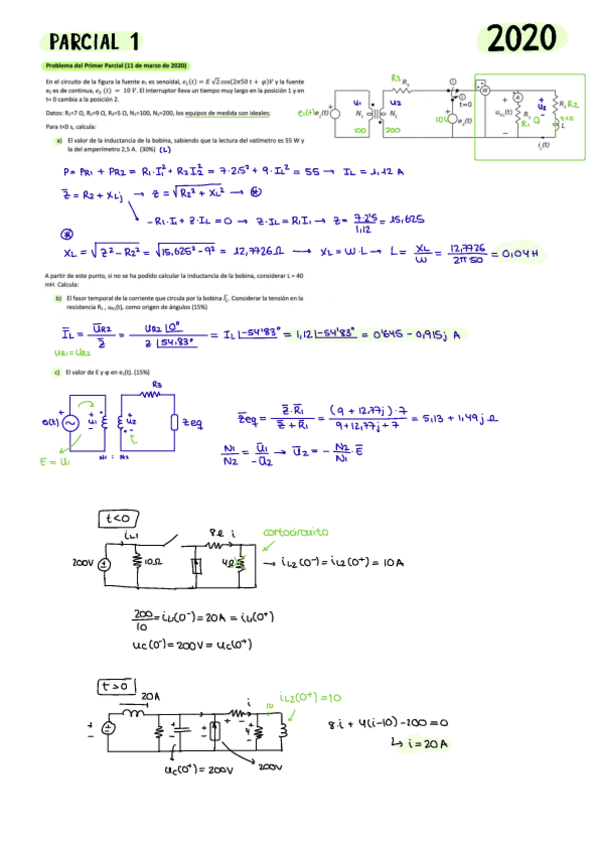 PARCIAL 1
2020
Problema del Primer Parcial (11 de marzo de 2020)
En el circuito de la figura la fuente e₁ es senoidal, e₁(t) = E √2 cos(2π50 t + φ)V y la fuente
e₂ es de continua, e₂ (t) = 10 V. El interruptor lleva un tiempo muy largo en la posición 1 y en
t= 0 cambia a la posición 2.
Datos: R₁=7 Ω, R₂=9 Ω, R₃=5 Ω, N₁=100, N₂=200, los equipos de medida son ideales;
Para t<0 s, calcula:
a) El valor de la inductancia de la bobina, sabiendo que la lectura del vatímetro es 55 W y
la del amperímetro 2,5 A. (30%) (L)
P = PR1 + PR2 = R₁·I₁² + R₂I₂² = 7·2.5² + 9·IL² = 55 → IL = 1,12 A
Z̄ = R2 + XLj → Z = √R2² + XL² → *
-R1·I1 + Z·IL = 0 → Z·IL = R1I1 → Z = 7·2'5 / 1,12 = 15,625
* XL = √Z² - R2² = √15,625² - 9² = 12,7726 Ω → XL = W·L → L = XL / W = 12,7726 / 2π50 = 0,04 H
A partir de este punto, si no se ha podido calcular la inductancia de la bobina, considerar L = 40
mH. Calcula:
b) El fasor temporal de la corriente que circula por la bobina I̅L. Considerar la tensión en la
resistencia R₁ , uR1(t), como origen de ángulos (15%)
ĪL = ŪR2 / Z̄ = UR2 |0° / Z |54.83° = IL |-54'83° = 1,12 |-54'83° = 0'645 - 0,915j A
UR1 = UR2
c) El valor de E y φ en e₁(t). (15%)
R3
e(t) + u1 u2 Zeq
N1 : N2
E = U1
Z̄eq = Z̄·R̄1 / Z̄ + R̄1 = (9 + 12,77j)·7 / 9 + 12,77j + 7 = 5,13 + 1,49j Ω
N1 / N2 = Ū1 / -Ū2 → Ū2 = - N2 / N1 · Ē
t<0
iL1 8Ω i cortocircuito
200V 10Ω 4Ω → iL2(0⁻) = iL2(0⁺) = 10A
200 / 10 = iL(0⁻) = 20A = iL(0⁺)
uc(0⁻) = 200V = uc(0⁺)
t>0
20A i 10 iL2(0⁺) = 10
8·i + 4(i-10) - 200 = 0
↳ i = 20A
uc(0⁺) = 200V 200V